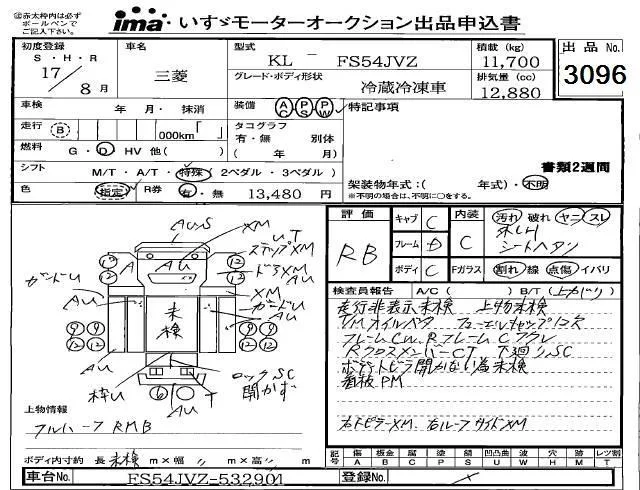 ◎赤太枠内は必ず
ボールペンで
ご記入下さい。
ima いすゞモーターオークション出品申込書
初度登録 車名 型式 積載 (kg) 出品 No.
S・H・R KL － FS54JVZ 11,700
17／8月 三菱 グレード・ボディ形状 排気量 (cc) 3096
冷蔵冷凍車 12,880
車検 年 月・抹消 装備 AC PS PW 特記事項
走行 B 000km タコグラフ
有・無 別体
燃料 G・D HV 他( ) ( 年 月)
シフト M/T・A/T・特殊(2ペダル・3ペダル) 書類2週間
色 指定 R券 有・無 13,480 円 架装物年式：( 年式)・不明
※不明の場合は、不明に○をする。
評価 キャブ C 内装 汚れ 破れ ヤニ スレ
RB フレーム D C シートヘタリ
ボディ C Fガラス 割れ 線 点傷 イバリ
検査員報告 A/C( ) B/T(上がり)
走行非表示未検 上物未検
T/Mオイルペタ フューエルキャップ1コ欠
フレームCW、RフレームCアグレ
RクロスメンバーCT 下廻りSC
ボディトビラ開かない為未検
看板PM
右トビラーXM、右ルーフサイドXM
AuS XM
UT
ステップXM
A AU
ドアXM
AU
XM
ガードU ガードU
AU AU
12 12 12 12
未検
9 9 12 12 9 9 12 12
ロックSC
開かず
枠U AU T
上物情報
フルハーフ RMB
ボディ内寸約 長 未検 m×幅 m×高 m
記号 傷 板金 腐 塗 部 凹凸曲 U 波 W 穴 H 跡 M レツ割 T
A B C P S
車台No. FS54JVZ-532901 登録No.